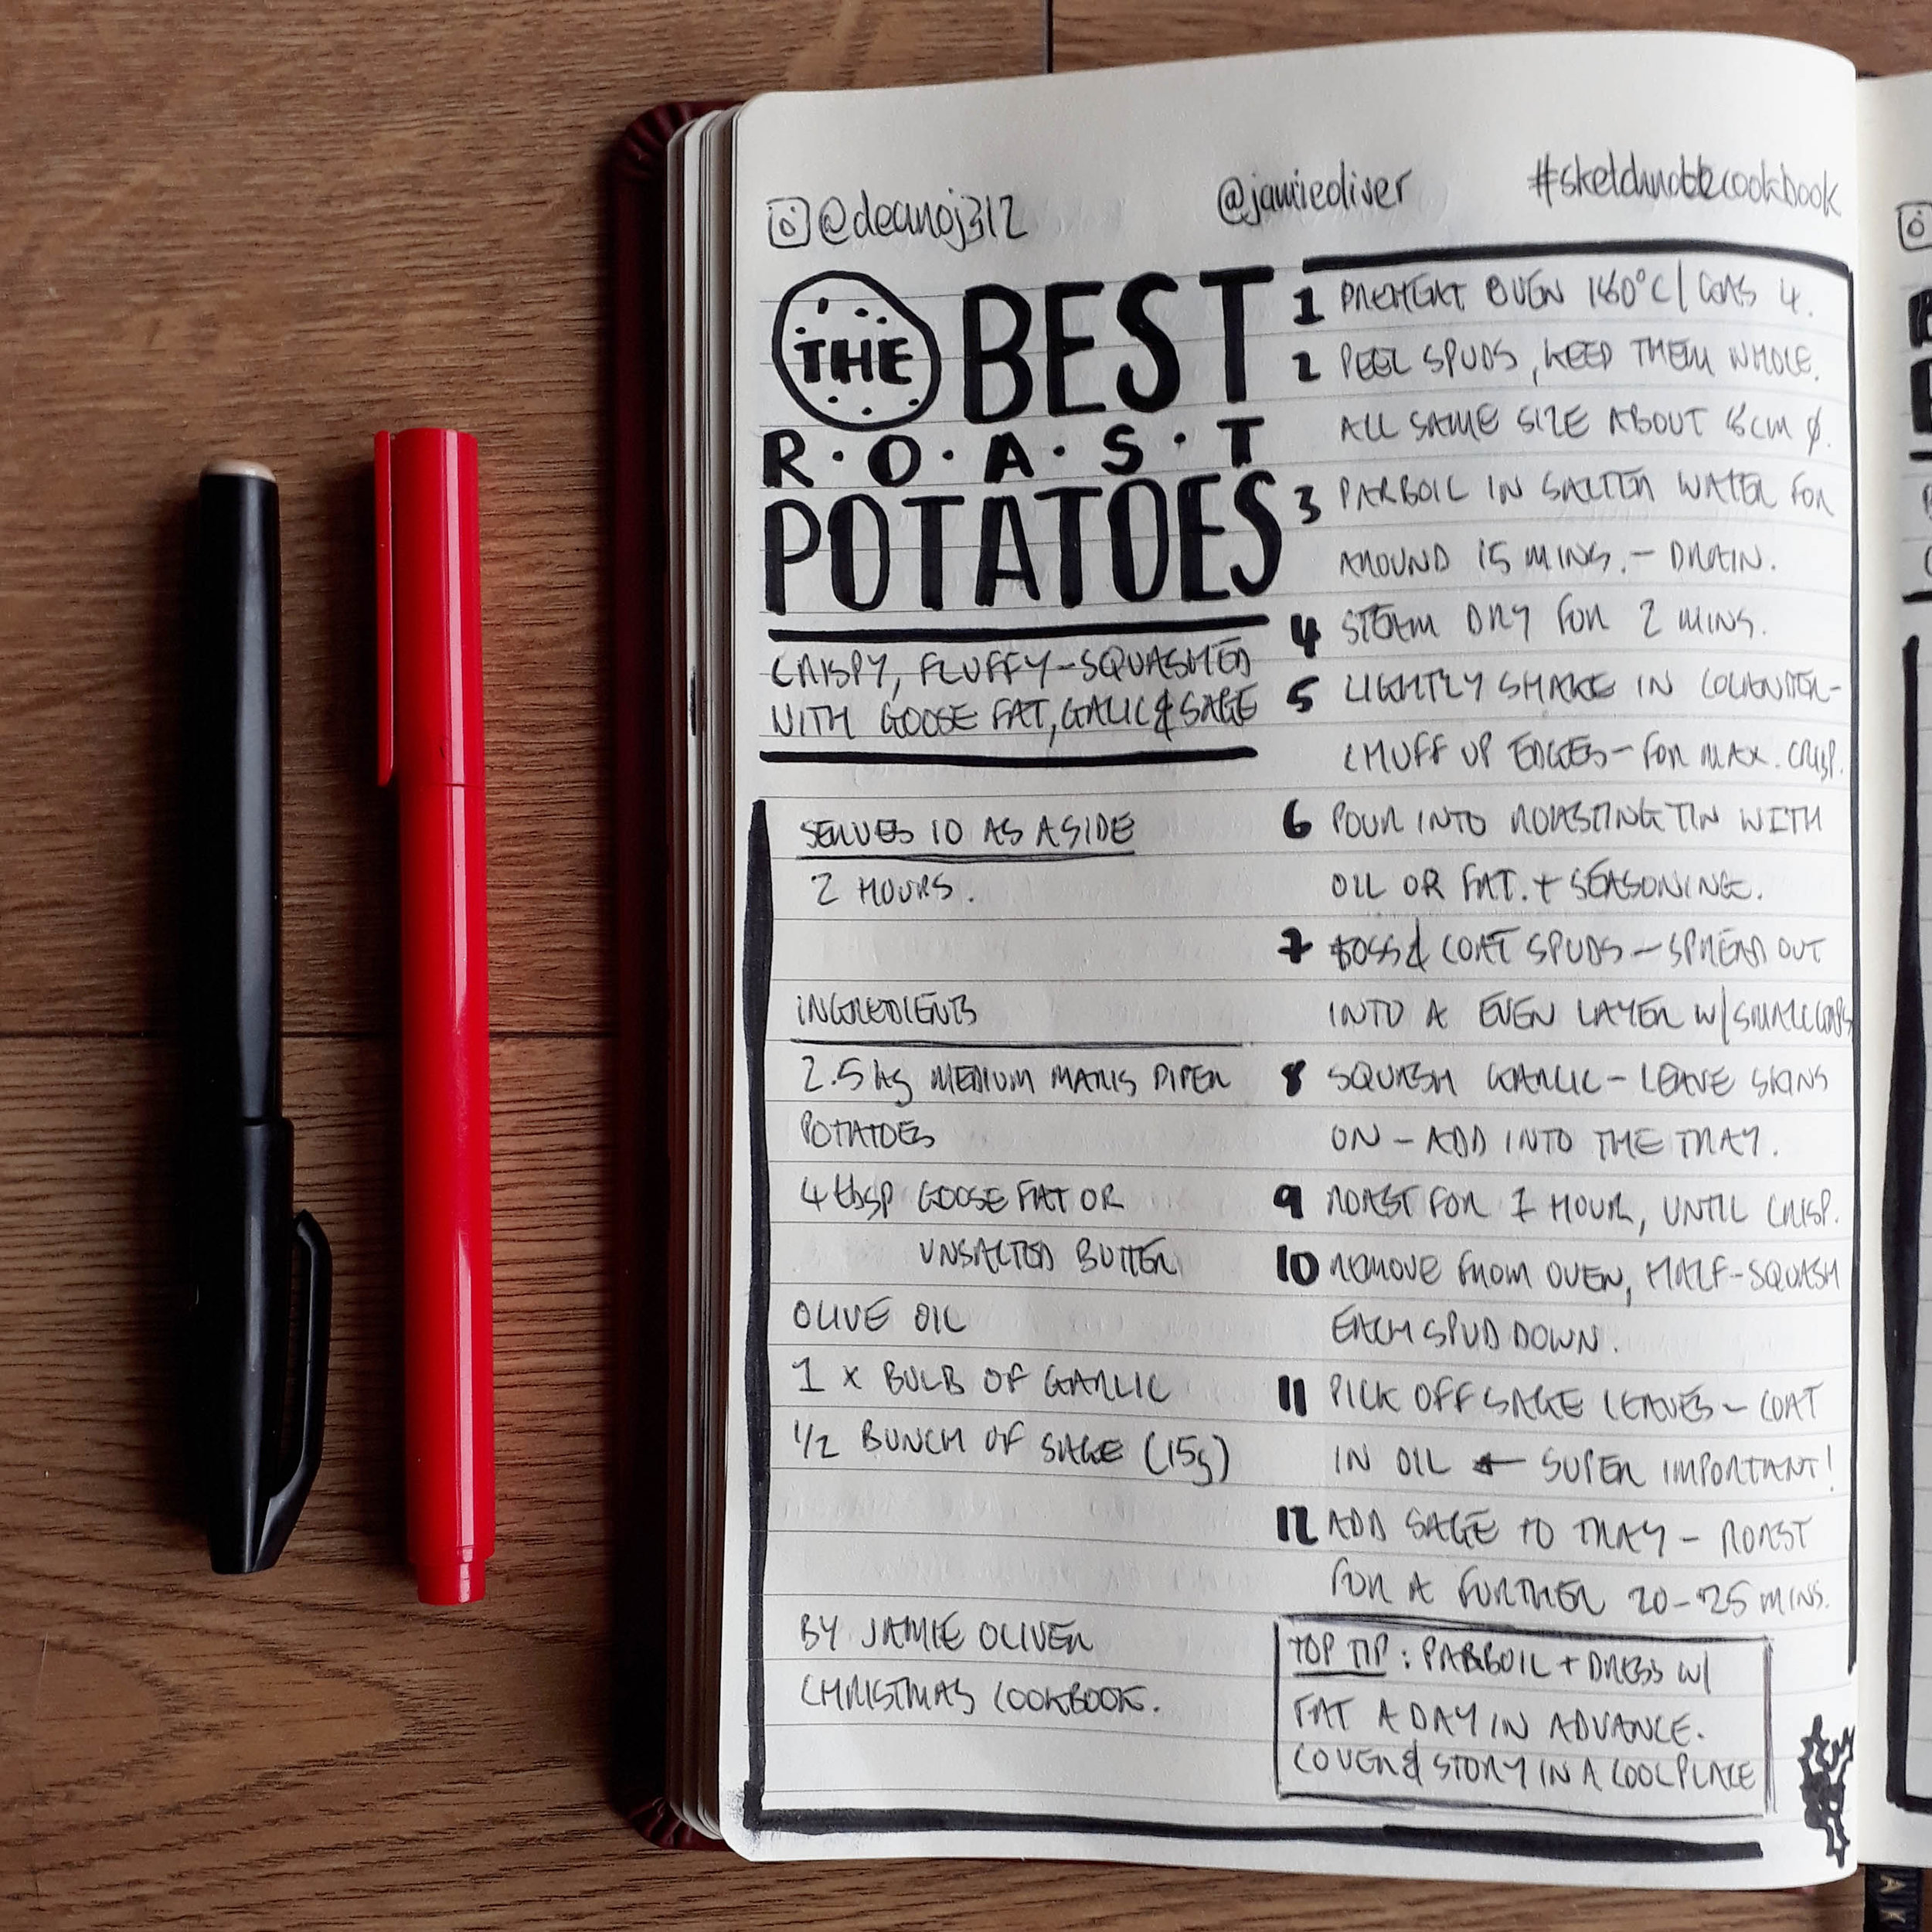 @deanoj312 @jamieoliver #sketchnotecookbook
THE BEST
R·O·A·S·T
POTATOES
CRISPY, FLUFFY-SQUASHED
WITH GOOSE FAT, GALIC & SAGE
SERVES 10 AS A SIDE
2 HOURS.
INGREDIENTS
2.5kg MEDIUM MARIS PIPER
POTATOES
4 tbsp GOOSE FAT OR
UNSALTED BUTTER
OLIVE OIL
1 x BULB OF GARLIC
1/2 BUNCH OF SAGE (15g)
BY JAMIE OLIVER
CHRISTMAS COOKBOOK.
1 PREHEAT OVEN 180°C/GAS 4.
2 PEEL SPUDS, KEEP THEM WHOLE.
ALL SAME SIZE ABOUT CM Ø.
3 PARBOIL IN SALTED WATER FOR
AROUND 15 MINS. - DRAIN.
4 STEAM DRY FOR 2 MINS.
5 LIGHTLY SHAKE IN COLANDER-
CHUFF UP EDGES - FOR MAX. CRISP.
6 POUR INTO ROASTING TIN WITH
OIL OR FAT. + SEASONING.
7 TOSS & COAT SPUDS - SPREAD OUT
INTO A EVEN LAYER W/ SMALL GAPS
8 SQUASH GARLIC - LEAVE SKINS
ON - ADD INTO THE TRAY.
9 ROAST FOR 1 HOUR, UNTIL CRISP.
10 REMOVE FROM OVEN, HALF-SQUASH
EACH SPUD DOWN.
11 PICK OFF SAGE LEAVES - COAT
IN OIL ← SUPER IMPORTANT!
12 ADD SAGE TO TRAY - ROAST
FOR A FURTHER 20-25 MINS.
TOP TIP: PARBOIL + DRESS W/
FAT A DAY IN ADVANCE.
COVER & STORY IN A COOL PLACE